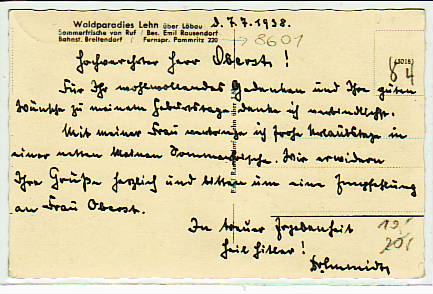 Waldparadies Lehn über Löbau
Sommerfrische von Ruf / Bes. Emil Rausendorf
Bahnst. Breitendorf / Fernspr. Pommritz 220
D. 7.7.1938.
→ 8601
Hochverehrter Herr Oberst!
84
Für Ihr wohlwollendes Gedenken und Ihre guten
Wünsche zu meinem Geburtstage danke ich verbindlichst.
Mit meiner Frau verbringe ich frohe Urlaubstage in
einer netten kleinen Sommerfrische. Wir erwidern
Ihre Grüße herzlich und bitten um eine Empfehlung
an Frau Oberst.
In treuer Ergebenheit
Heil Hitler!